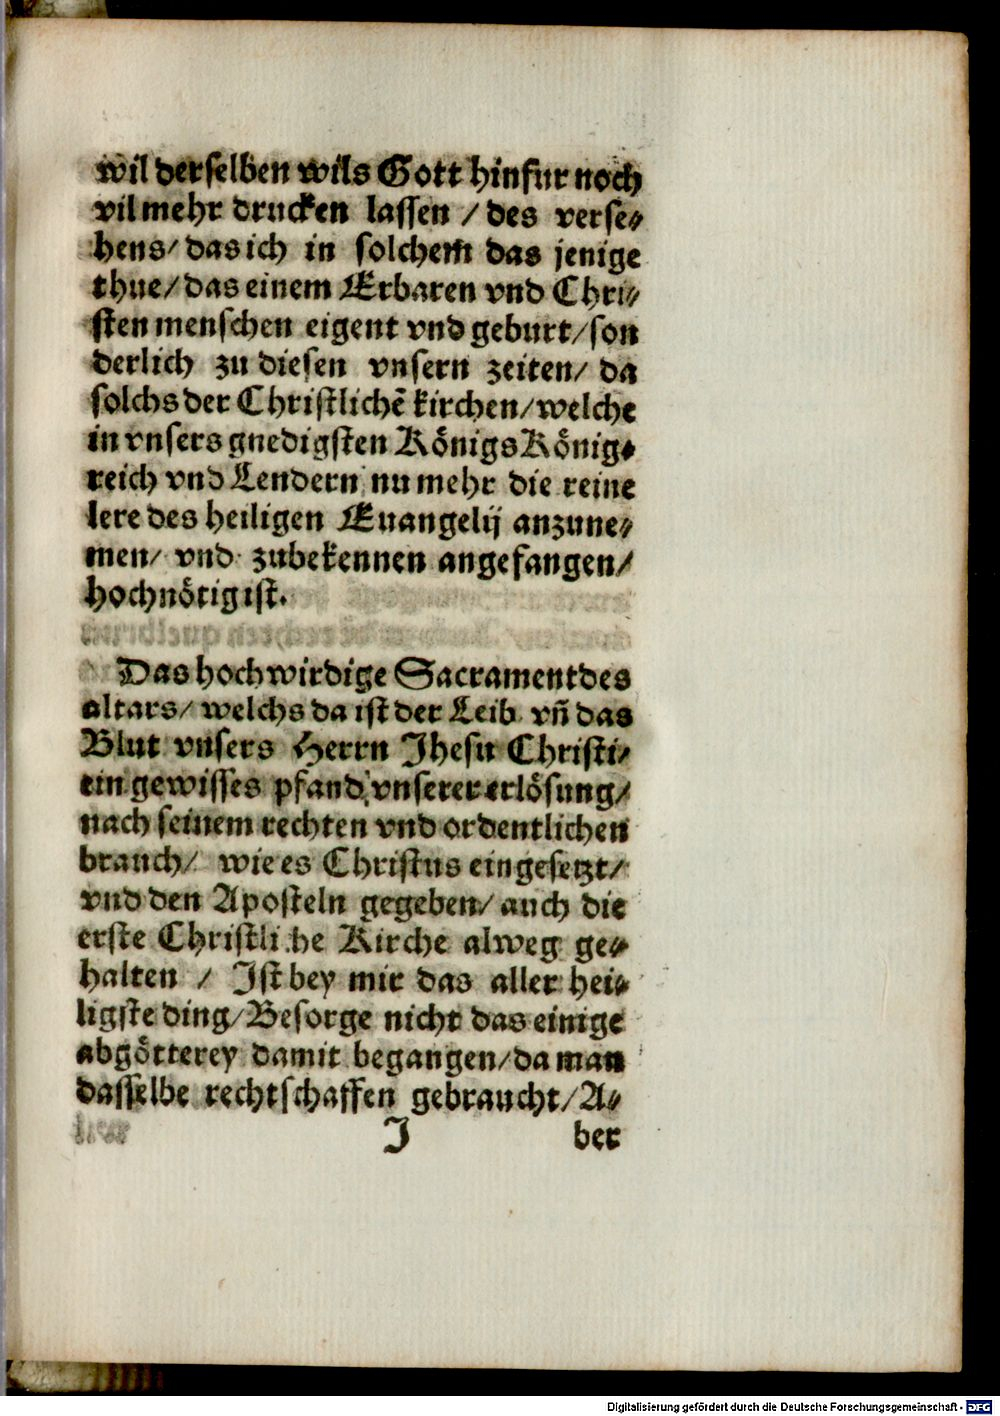 wil derselben wils Gott hinfur noch
vil mehr drucken lassen / des verse⸗
hens/ das ich in solchem das jenige
thue/ das einem Erbaren vnd Chri⸗
sten menschen eigent vnd geburt/ son
derlich zu diesen vnsern zeiten/ da
solchs der Christlichẽ kirchen/ welche
in vnsers gnedigsten Königs König⸗
reich vnd Lendern nu mehr die reine
lere des heiligen Euangelij anzune⸗
men/ vnd zubekennen angefangen/
hochnötig ist.
Das hochwirdige Sacrament des
altars/ welchs da ist der Leib vñ das
Blut vnsers Herrn Jhesu Christi⸗
ein gewisses pfand vnserer erlösung/
nach seinem rechten vnd ordentlichen
brauch/ wie es Christus eingesetzt/
vnd den Aposteln gegeben/ auch die
erste Christli he Kirche alweg ge⸗
halten / Ist bey mir das aller hei⸗
ligste ding/ Besorge nicht das einige
abgötterey damit begangen/ da man
dasselbe rechtschaffen gebraucht/ A⸗
J ber
Digitalisierung gefördert durch die Deutsche Forschungsgemeinschaft - DFG